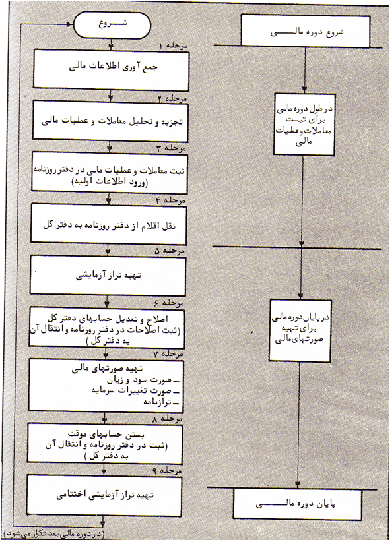 شروع
مرحله ۱
جمع آوری اطلاعات مالی
مرحله ۲
تجزیه و تحلیل معاملات و عملیات مالی
مرحله ۳
ثبت معاملات و عملیات مالی در دفتر روزنامه
(ورود اطلاعات اولیه)
مرحله ۴
نقل اقلام از دفتر روزنامه به دفتر کل
مرحله ۵
تهیه تراز آزمایشی
مرحله ۶
اصلاح و تعدیل حسابهای دفتر کل
(ثبت اصلاحات در دفتر روزنامه و انتقال آن
به دفتر کل)
مرحله ۷
تهیه صورتهای مالی
ـ صورت سود و زیان
ـ صورت تغییرات سرمایه
ـ ترازنامه
مرحله ۸
بستن حسابهای موقت
(ثبت در دفتر روزنامه و انتقال آن
به دفتر کل)
مرحله ۹
تهیه تراز آزمایشی اختتامی
(در دوره مالی بعد تکرار می‌شود)
شروع دوره مالی
در طول دوره مالی
برای ثبت
معاملات و عملیات
مالی
در پایان دوره مالی
برای تهیه
صورتهای مالی
پایان دوره مالی